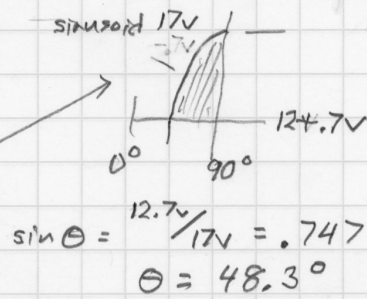 sinusoid 17v
12+.7v
0° 90°
sin θ = 12.7v/17v = .747
θ = 48.3°